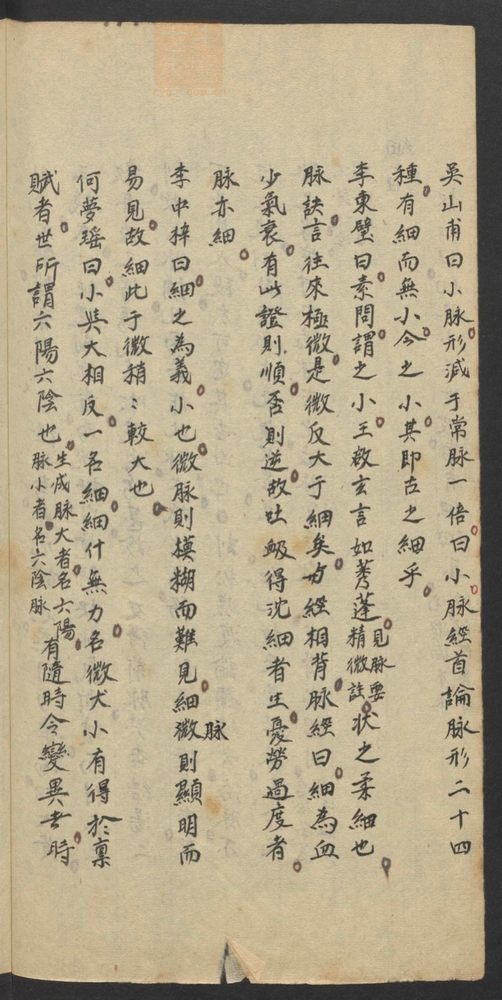 吳山甫曰小脉形減于常脉一倍曰小脉經首論脉形二十四
種有細而無小今之小其即古之細乎
李東璧曰素問謂之小王啟玄言如莠蓬見脉要精微註狀之柔細也
脉訣言往來極微是微反大于細矣与經相背脉經曰細為血
少氣衰有此證則順否則逆故吐衂得沈細者生憂勞過度者
脉亦細
李中梓曰細之為義小也微脉則模糊而難見細微脉則顯明而
易見故細此于微稍〻較大也
何夢瑶曰小與大相反一名細細什無力名微大小有得於禀
賦者世所謂六陽六陰也生成脉大者名六陽脉小者名六陰脉有隨時令變異者時